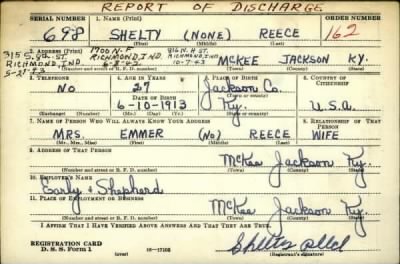 REPORT OF DISCHARGE
SERIAL NUMBER 1. NAME (Print) ORDER NUMBER
698 SHELTY (NONE) REECE 162
(First) (Middle) (Last)
315 S. 8th ST. 1700 N-F 816 N. H ST.
2. ADDRESS (Print) RICHMOND, IND. RICHMOND, IND. McKEE JACKSON KY.
RICHMOND IND 6-8-42 10-7-43
5-21-42
(Number and street or R. F. D. number) (Town) (County) (State)
3. TELEPHONE 4. AGE IN YEARS 5. PLACE OF BIRTH 6. COUNTRY OF CITIZENSHIP
NO 27 Jackson Co. U.S.A.
DATE OF BIRTH
6-10-1913 Ky.
(Mo.) (Day) (Yr.) (State or country)
7. NAME OF PERSON WHO WILL ALWAYS KNOW YOUR ADDRESS 8. RELATIONSHIP OF THAT PERSON
MRS. EMMER (No) REECE WIFE
(Mr., Mrs., Miss) (First) (Middle) (Last)
9. ADDRESS OF THAT PERSON
McKee Jackson Ky.
(Number and street or R. F. D. number) (Town) (County) (State)
10. EMPLOYER'S NAME
Early & Shepherd
11. PLACE OF EMPLOYMENT OR BUSINESS
McKee Jackson Ky.
(Number and street or R. F. D. number) (Town) (County) (State)
I AFFIRM THAT I HAVE VERIFIED ABOVE ANSWERS AND THAT THEY ARE TRUE.
REGISTRATION CARD
D. S. S. Form 1 (over) 16-17105
(Registrant's signature)